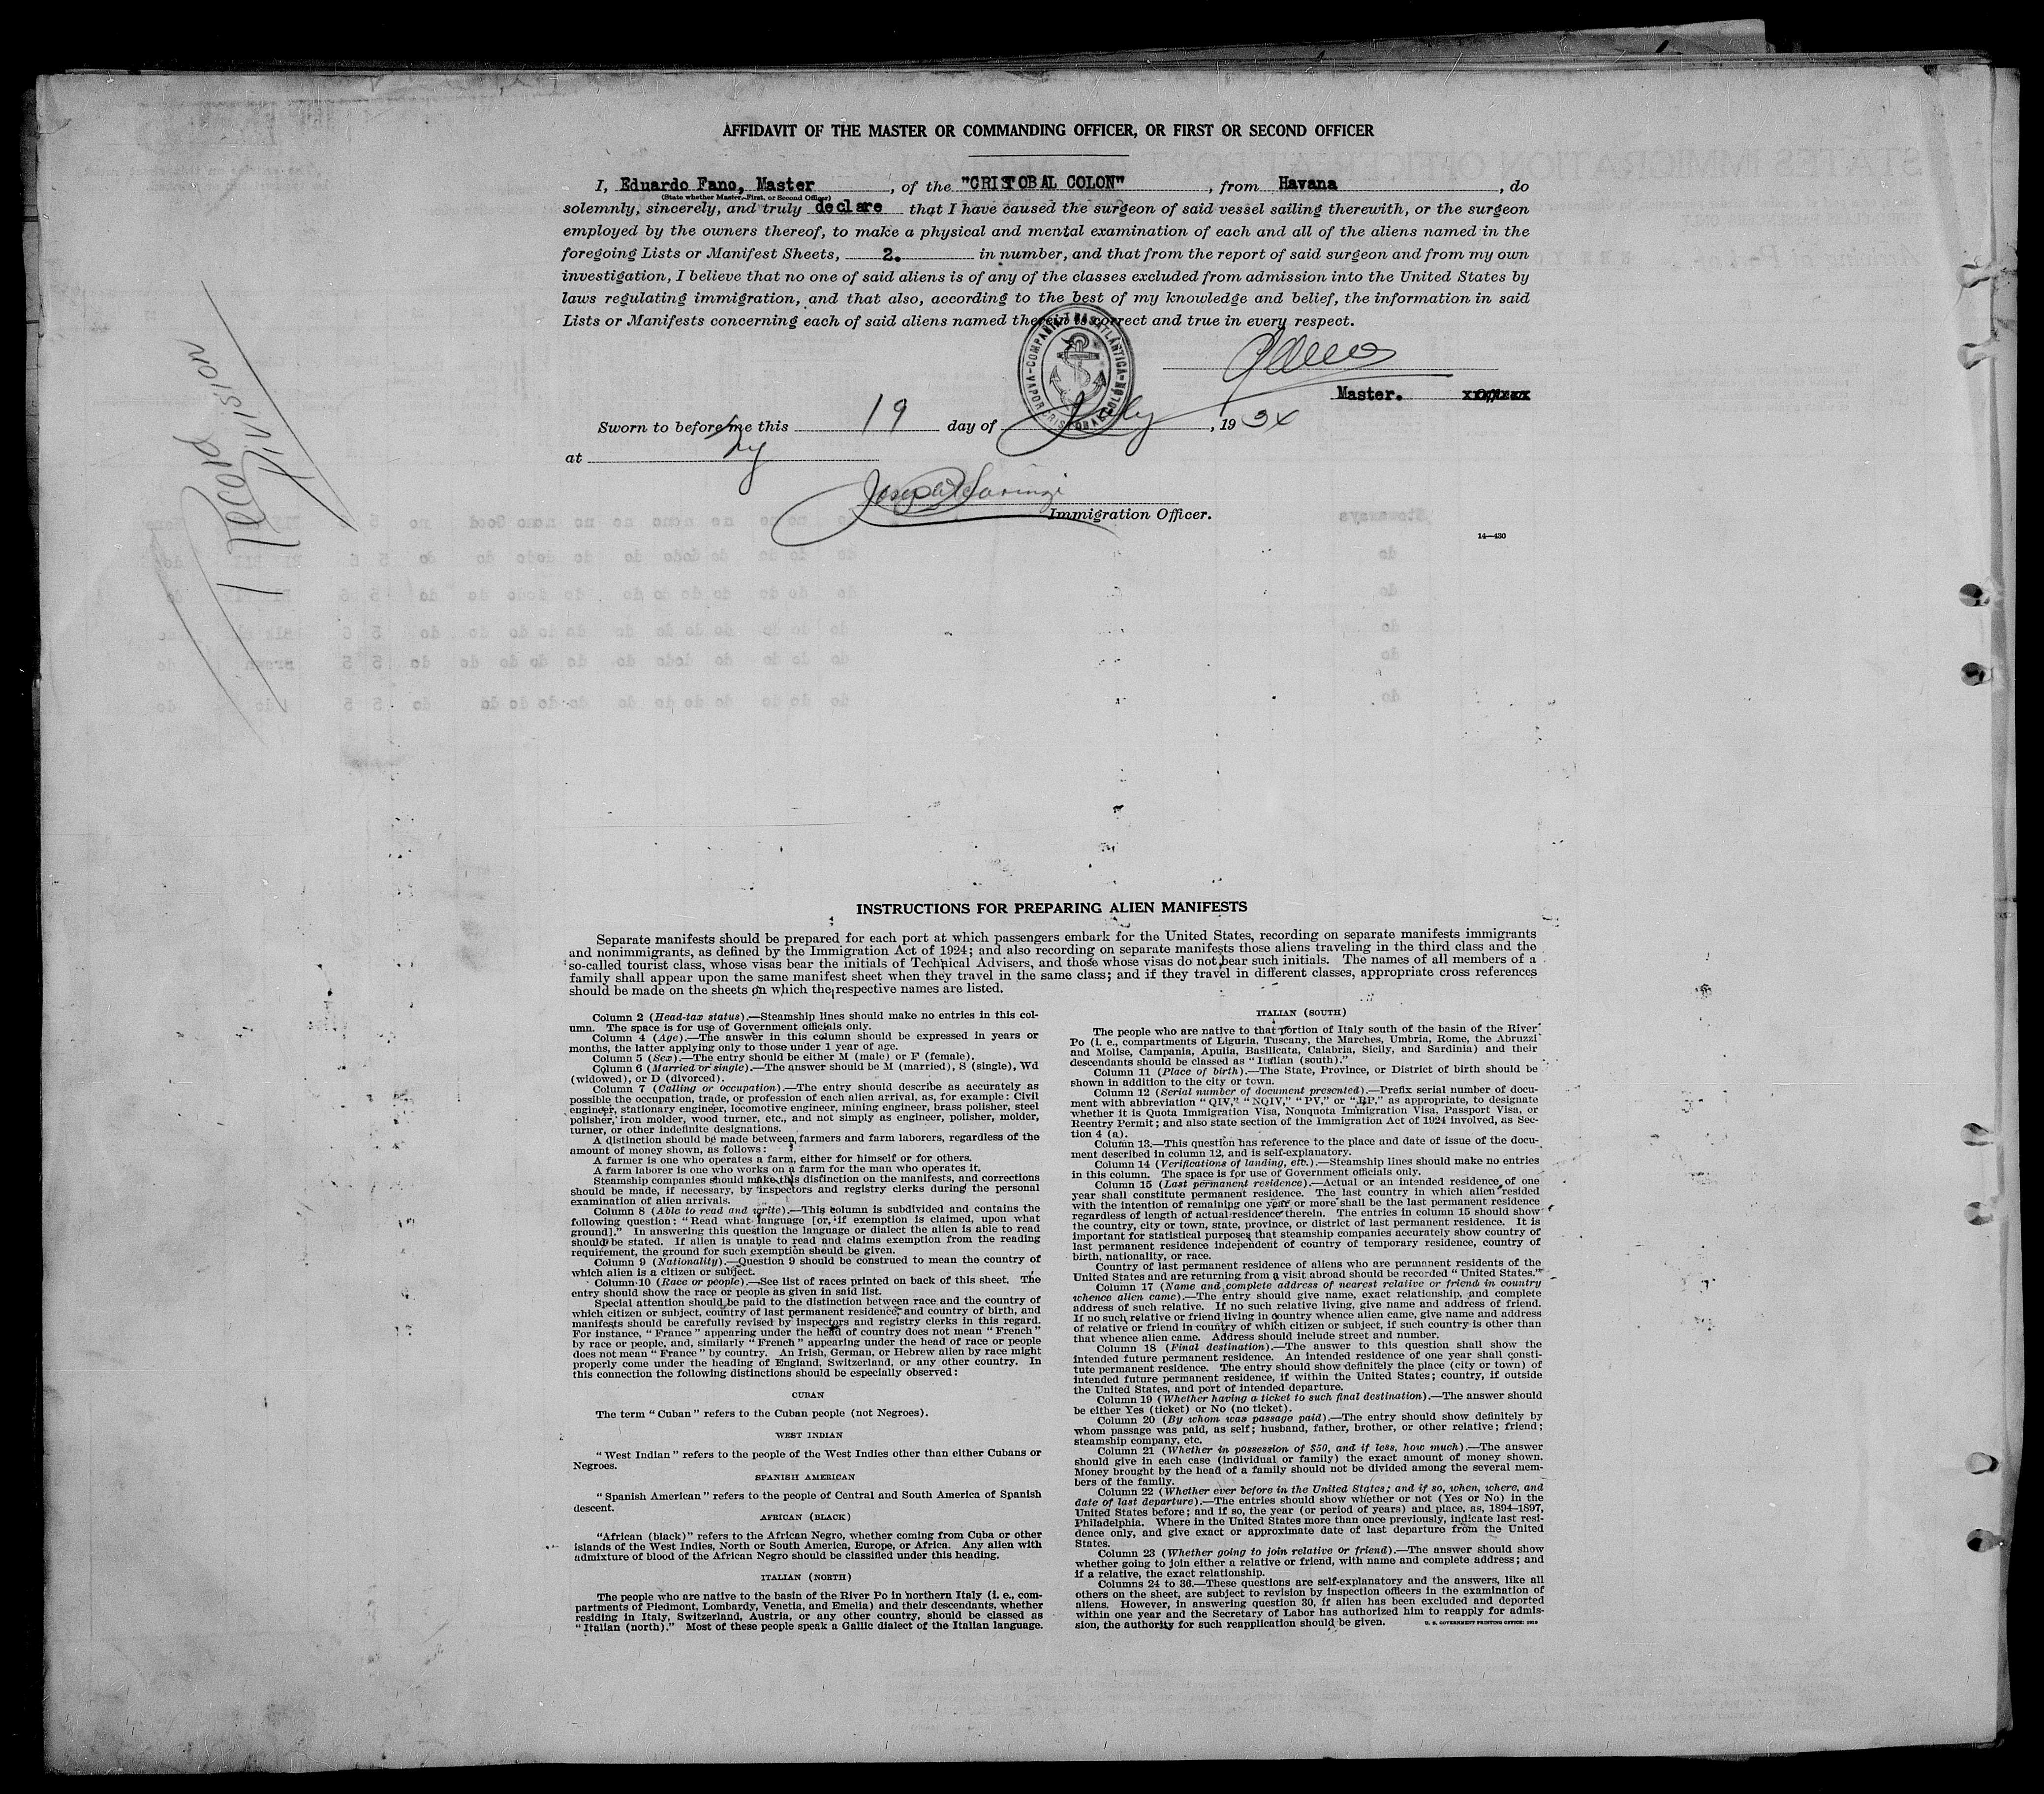 AFFIDAVIT OF THE MASTER OR COMMANDING OFFICER, OR FIRST OR SECOND OFFICER
I, Eduardo Fano, Master, of the "CRISTOBAL COLON", from Havana, do
(State whether Master, First, or Second Officer)
solemnly, sincerely, and truly declare that I have caused the surgeon of said vessel sailing therewith, or the surgeon
employed by the owners thereof, to make a physical and mental examination of each and all of the aliens named in the
foregoing Lists or Manifest Sheets, 2. in number, and that from the report of said surgeon and from my own
investigation, I believe that no one of said aliens is of any of the classes excluded from admission into the United States by
laws regulating immigration, and that also, according to the best of my knowledge and belief, the information in said
Lists or Manifests concerning each of said aliens named therein is correct and true in every respect.
Master.
Sworn to before me this 19 day of July, 1934
at NY
Immigration Officer.
14—430
1 Record
Division
INSTRUCTIONS FOR PREPARING ALIEN MANIFESTS
Separate manifests should be prepared for each port at which passengers embark for the United States, recording on separate manifests immigrants
and nonimmigrants, as defined by the Immigration Act of 1924; and also recording on separate manifests those aliens traveling in the third class and the
so-called tourist class, whose visas bear the initials of Technical Advisers, and those whose visas do not bear such initials. The names of all members of a
family shall appear upon the same manifest sheet when they travel in the same class; and if they travel in different classes, appropriate cross references
should be made on the sheets on which the respective names are listed.
Column 2 (Head-tax status).—Steamship lines should make no entries in this col-
umn. The space is for use of Government officials only.
Column 4 (Age).—The answer in this column should be expressed in years or
months, the latter applying only to those under 1 year of age.
Column 5 (Sex).—The entry should be either M (male) or F (female).
Column 6 (Married or single).—The answer should be M (married), S (single), Wd
(widowed), or D (divorced).
Column 7 (Calling or occupation).—The entry should describe as accurately as
possible the occupation, trade, or profession of each alien arrival, as, for example: Civil
engineer, stationary engineer, locomotive engineer, mining engineer, brass polisher, steel
polisher, iron molder, wood turner, etc., and not simply as engineer, polisher, molder,
turner, or other indefinite designations.
A distinction should be made between farmers and farm laborers, regardless of the
amount of money shown, as follows:
A farmer is one who operates a farm, either for himself or for others.
A farm laborer is one who works on a farm for the man who operates it.
Steamship companies should make this distinction on the manifests, and corrections
should be made, if necessary, by inspectors and registry clerks during the personal
examination of alien arrivals.
Column 8 (Able to read and write).—This column is subdivided and contains the
following question: "Read what language [or, if exemption is claimed, upon what
ground]." In answering this question the language or dialect the alien is able to read
should be stated. If alien is unable to read and claims exemption from the reading
requirement, the ground for such exemption should be given.
Column 9 (Nationality).—Question 9 should be construed to mean the country of
which alien is a citizen or subject.
Column 10 (Race or people).—See list of races printed on back of this sheet. The
entry should show the race or people as given in said list.
Special attention should be paid to the distinction between race and the country of
which citizen or subject, country of last permanent residence, and country of birth, and
manifests should be carefully revised by inspectors and registry clerks in this regard.
For instance, "France" appearing under the head of country does not mean "French"
by race or people, and, similarly "French" appearing under the head of race or people
does not mean "France" by country. An Irish, German, or Hebrew alien by race might
properly come under the heading of England, Switzerland, or any other country. In
this connection the following distinctions should be especially observed:
CUBAN
The term "Cuban" refers to the Cuban people (not Negroes).
WEST INDIAN
"West Indian" refers to the people of the West Indies other than either Cubans or
Negroes.
SPANISH AMERICAN
"Spanish American" refers to the people of Central and South America of Spanish
descent.
AFRICAN (BLACK)
"African (black)" refers to the African Negro, whether coming from Cuba or other
islands of the West Indies, North or South America, Europe, or Africa. Any alien with
admixture of blood of the African Negro should be classified under this heading.
ITALIAN (NORTH)
The people who are native to the basin of the River Po in northern Italy (i. e., com-
partments of Piedmont, Lombardy, Venetia, and Emelia) and their descendants, whether
residing in Italy, Switzerland, Austria, or any other country, should be classed as
"Italian (north)." Most of these people speak a Gallic dialect of the Italian language.
ITALIAN (SOUTH)
The people who are native to that portion of Italy south of the basin of the River
Po (i. e., compartments of Liguria, Tuscany, the Marches, Umbria, Rome, the Abruzzi
and Molise, Campania, Apulia, Basilicata, Calabria, Sicily, and Sardinia) and their
descendants should be classed as "Italian (south)."
Column 11 (Place of birth).—The State, Province, or District of birth should be
shown in addition to the city or town.
Column 12 (Serial number of document presented).—Prefix serial number of docu-
ment with abbreviation "QIV," "NQIV," "PV," or "RP," as appropriate, to designate
whether it is Quota Immigration Visa, Nonquota Immigration Visa, Passport Visa, or
Reentry Permit; and also state section of the Immigration Act of 1924 involved, as Sec-
tion 4 (a).
Column 13.—This question has reference to the place and date of issue of the docu-
ment described in column 12, and is self-explanatory.
Column 14 (Verifications of landing, etc.).—Steamship lines should make no entries
in this column. The space is for use of Government officials only.
Column 15 (Last permanent residence).—Actual or an intended residence of one
year shall constitute permanent residence. The last country in which alien resided
with the intention of remaining one year or more shall be the last permanent residence
regardless of length of actual residence therein. The entries in column 15 should show
the country, city or town, state, province, or district of last permanent residence. It is
important for statistical purposes that steamship companies accurately show country of
last permanent residence independent of country of temporary residence, country of
birth, nationality, or race.
Country of last permanent residence of aliens who are permanent residents of the
United States and are returning from a visit abroad should be recorded "United States."
Column 17 (Name and complete address of nearest relative or friend in country
whence alien came).—The entry should give name, exact relationship, and complete
address of such relative. If no such relative living, give name and address of friend.
If no such relative or friend living in country whence alien came, give name and address
of relative or friend in country of which citizen or subject, if such country is other than
that whence alien came. Address should include street and number.
Column 18 (Final destination).—The answer to this question shall show the
intended future permanent residence. An intended residence of one year shall consti-
tute permanent residence. The entry should show definitely the place (city or town) of
intended future permanent residence, if within the United States; country, if outside
the United States, and port of intended departure.
Column 19 (Whether having a ticket to such final destination).—The answer should
be either Yes (ticket) or No (no ticket).
Column 20 (By whom was passage paid).—The entry should show definitely by
whom passage was paid, as self; husband, father, brother, or other relative; friend;
steamship company, etc.
Column 21 (Whether in possession of $50, and if less, how much).—The answer
should give in each case (individual or family) the exact amount of money shown.
Money brought by the head of a family should not be divided among the several mem-
bers of the family.
Column 22 (Whether ever before in the United States; and if so, when, where, and
date of last departure).—The entries should show whether or not (Yes or No) in the
United States before; and if so, the year (or period of years) and place, as, 1894-1897,
Philadelphia. Where in the United States more than once previously, indicate last resi-
dence only, and give exact or approximate date of last departure from the United
States.
Column 23 (Whether going to join relative or friend).—The answer should show
whether going to join either a relative or friend, with name and complete address; and
if a relative, the exact relationship.
Columns 24 to 36.—These questions are self-explanatory and the answers, like all
others on the sheet, are subject to revision by inspection officers in the examination of
aliens. However, in answering question 30, if alien has been excluded and deported
within one year and the Secretary of Labor has authorized him to reapply for admis-
sion, the authority for such reapplication should be given.